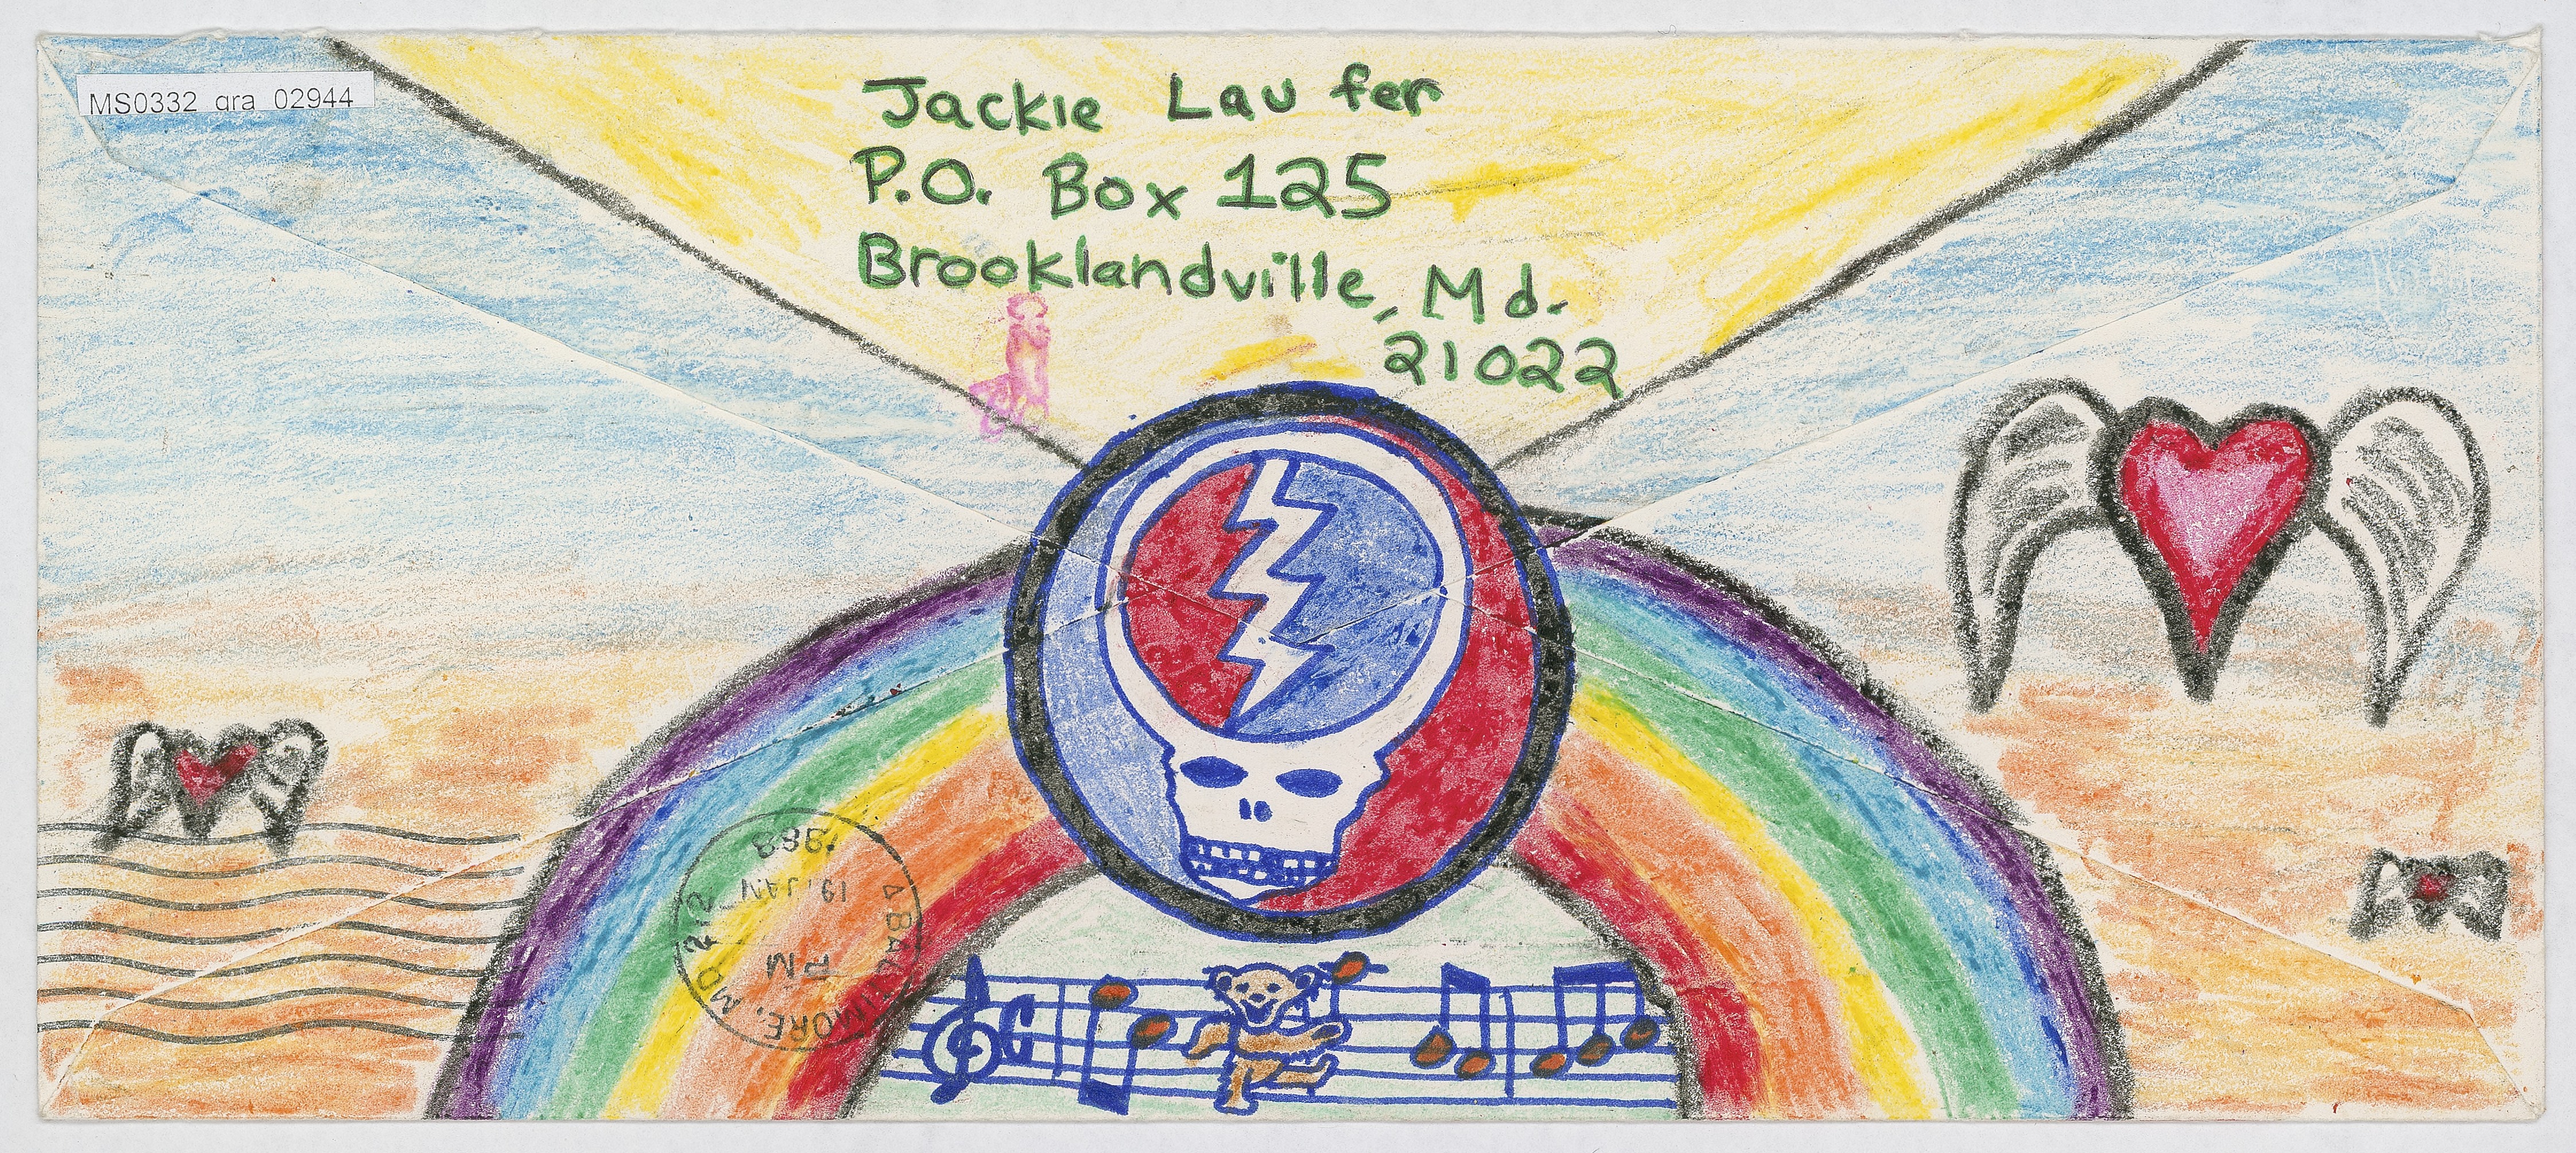 MS0332_gra_02944
Jackie Laufer
P.O. Box 125
Brooklandville, Md.
21022
BALTIMORE, MD 212
PM
19 JAN
1988